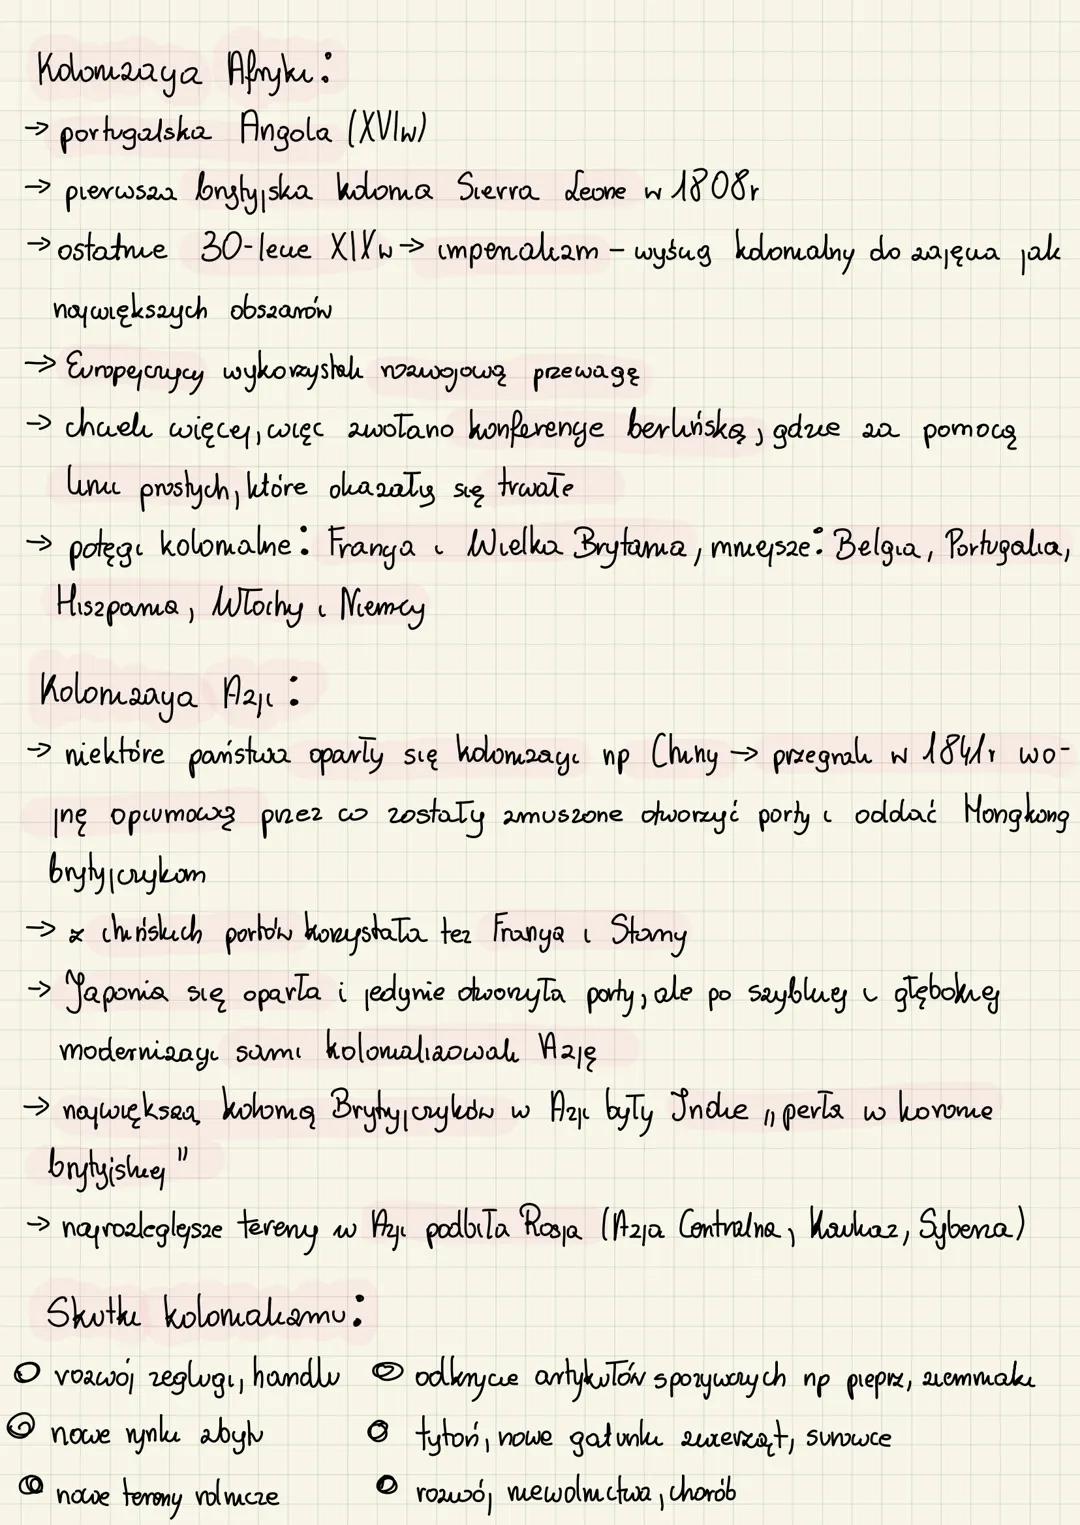 Kolonizacja Afryki:
→ portugalska Angola (XVIw)
→ pierwsza brytyjska kolonia Sierra Leone w 1808r
→ ostatnie 30-lecie XIXw → imperializm – wyścig kolonialny do zajęcia jak
największych obszarów
→ Europejczycy wykorzystali rozwojową przewagę
→ chcieli więcej, więc zwołano konferencje berlińską, gdzie za pomocą
linii prostych, które okazały się trwałe
→ potęgi kolonialne: Francja i Wielka Brytania, mniejsze: Belgia, Portugalia,
Hiszpania, Włochy i Niemcy
Kolonizacja Azji:
→ niektóre państwa oparły się kolonizacji np Chiny → przegrali w 1841r wo-
jnę opiumową przez co zostały zmuszone otworzyć porty i oddać Hongkong
brytyjczykom
→ z chińskich portów korzystała też Francja i Stany
→ Japonia się oparła i jedynie otworzyła porty, ale po szybkiej i głębokiej
modernizacji sami kolonializowali Azję
→ największą kolonią Brytyjczyków w Azji były Indie „perła w koronie
brytyjskiej"
→ najrozleglejsze tereny w Azji podbiła Rosja (Azja Centralna, Kaukaz, Syberia)
Skutki kolonializmu:
○ rozwój żeglugi, handlu ○ odkrycie artykułów spożywczych np pieprz, ziemniaki
○ nowe rynki zbytu ○ tytoń, nowe gatunki zwierząt, surowce
○ nowe tereny rolnicze ○ rozwój niewolnictwa, chorób